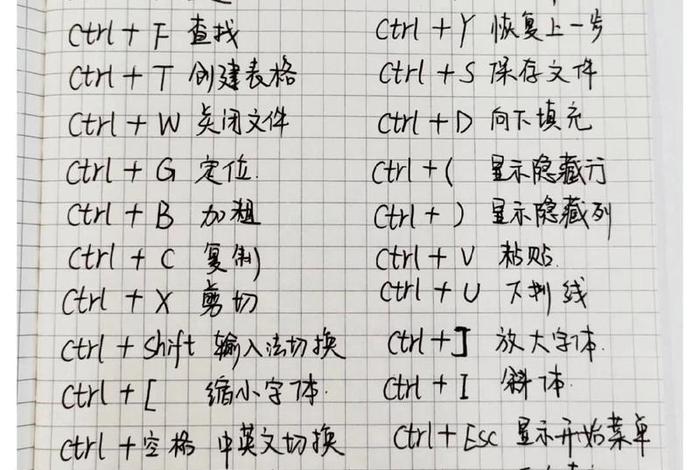 Ctrl + F 查找
Ctrl + T 创建表格
Ctrl + W 关闭文件
Ctrl + G 定位.
Ctrl + B 加粗
Ctrl + C 复制
Ctrl + X 剪切
Ctrl + Shift 输入法切换
Ctrl + [ 缩小字体.
Ctrl + 空格 中英文切换
Ctrl + Y 恢复上一步
Ctrl + S 保存文件
Ctrl + D 向下填充
Ctrl + ( 显示隐藏行
Ctrl + ) 显示隐藏列
Ctrl + V 粘贴.
Ctrl + U 下划线
Ctrl + ] 放大字体.
Ctrl + I 斜体.
Ctrl + Esc 显示开始菜单